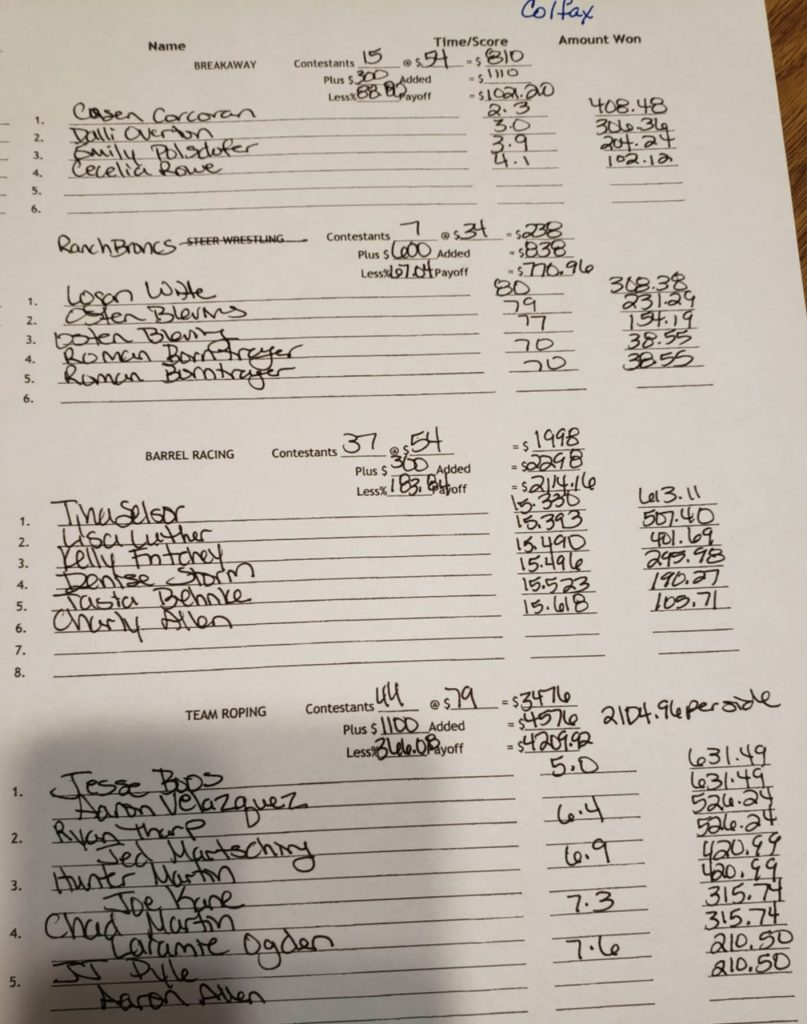 Colfax
Name Time/Score Amount Won
BREAKAWAY Contestants 15 @ $ 54 = $ 810
Plus $ 300 Added = $ 1110
Less% 88.80 Payoff = $ 1021.20
1. Casen Corcoran 2.3 408.48
2. Dalli Overton 3.0 306.36
3. Emily Polsdofer 3.9 204.24
4. Cecelia Rowe 4.1 102.12
5.
6.
Ranch Broncs STEER WRESTLING Contestants 7 @ $ 34 = $ 238
Plus $ 600 Added = $ 838
Less% 67.04 Payoff = $ 770.96
1. Logan White 80 308.38
2. Osten Blevins 79 231.29
3. Osten Blevins 77 154.19
4. Roman Borntrager 70 38.55
5. Roman Borntrager 70 38.55
6.
BARREL RACING Contestants 37 @ $ 54 = $ 1998
Plus $ 300 Added = $ 2298
Less% 183.84 Payoff = $ 2114.16
1. Tina Selsor 15.330 613.11
2. Lisa Luther 15.393 507.40
3. Kelly Fritchey 15.490 401.69
4. Denise Storm 15.496 295.98
5. Tasta Behnke 15.523 190.27
6. Charly Allen 15.618 105.71
7.
8.
TEAM ROPING Contestants 44 @ $ 79 = $ 3476
Plus $ 1100 Added = $ 4576 2104.96 per side
Less% 366.08 Payoff = $ 4209.92
1. Jesse Boos 5.0 631.49
Aaron Velazquez 631.49
2. Ryan Tharp 6.4 526.24
Jed Martschiny 526.24
3. Hunter Martin 6.9 420.99
Joe Kane 420.99
4. Chad Martin 7.3 315.74
Laramie Ogden 315.74
5. JJ Dyle 7.6 210.50
Aaron Allen 210.50